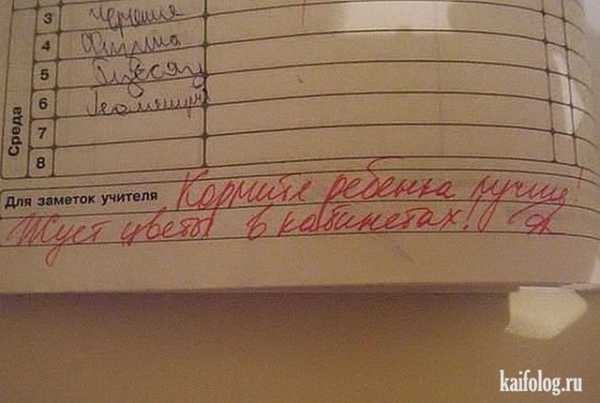 3 черчение
4 Физика
5
6 Геометрия
7
8
Среда
Для заметок учителя Кормите ребенка лучше!
Жует цветы в кабинетах!
kaifolog.ru